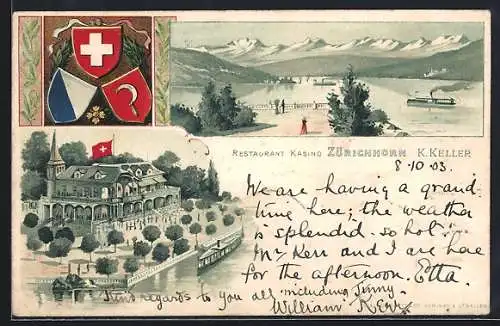 RESTAURANT KASINO ZÜRICHHORN K. KELLER
8·10·03.
We are having a grand
time here; the weather
is splendid. so hot.
Mr Kerr and I are here
for the afternoon. Etta.
Kind regards to you all including Jinny.
William Kerr